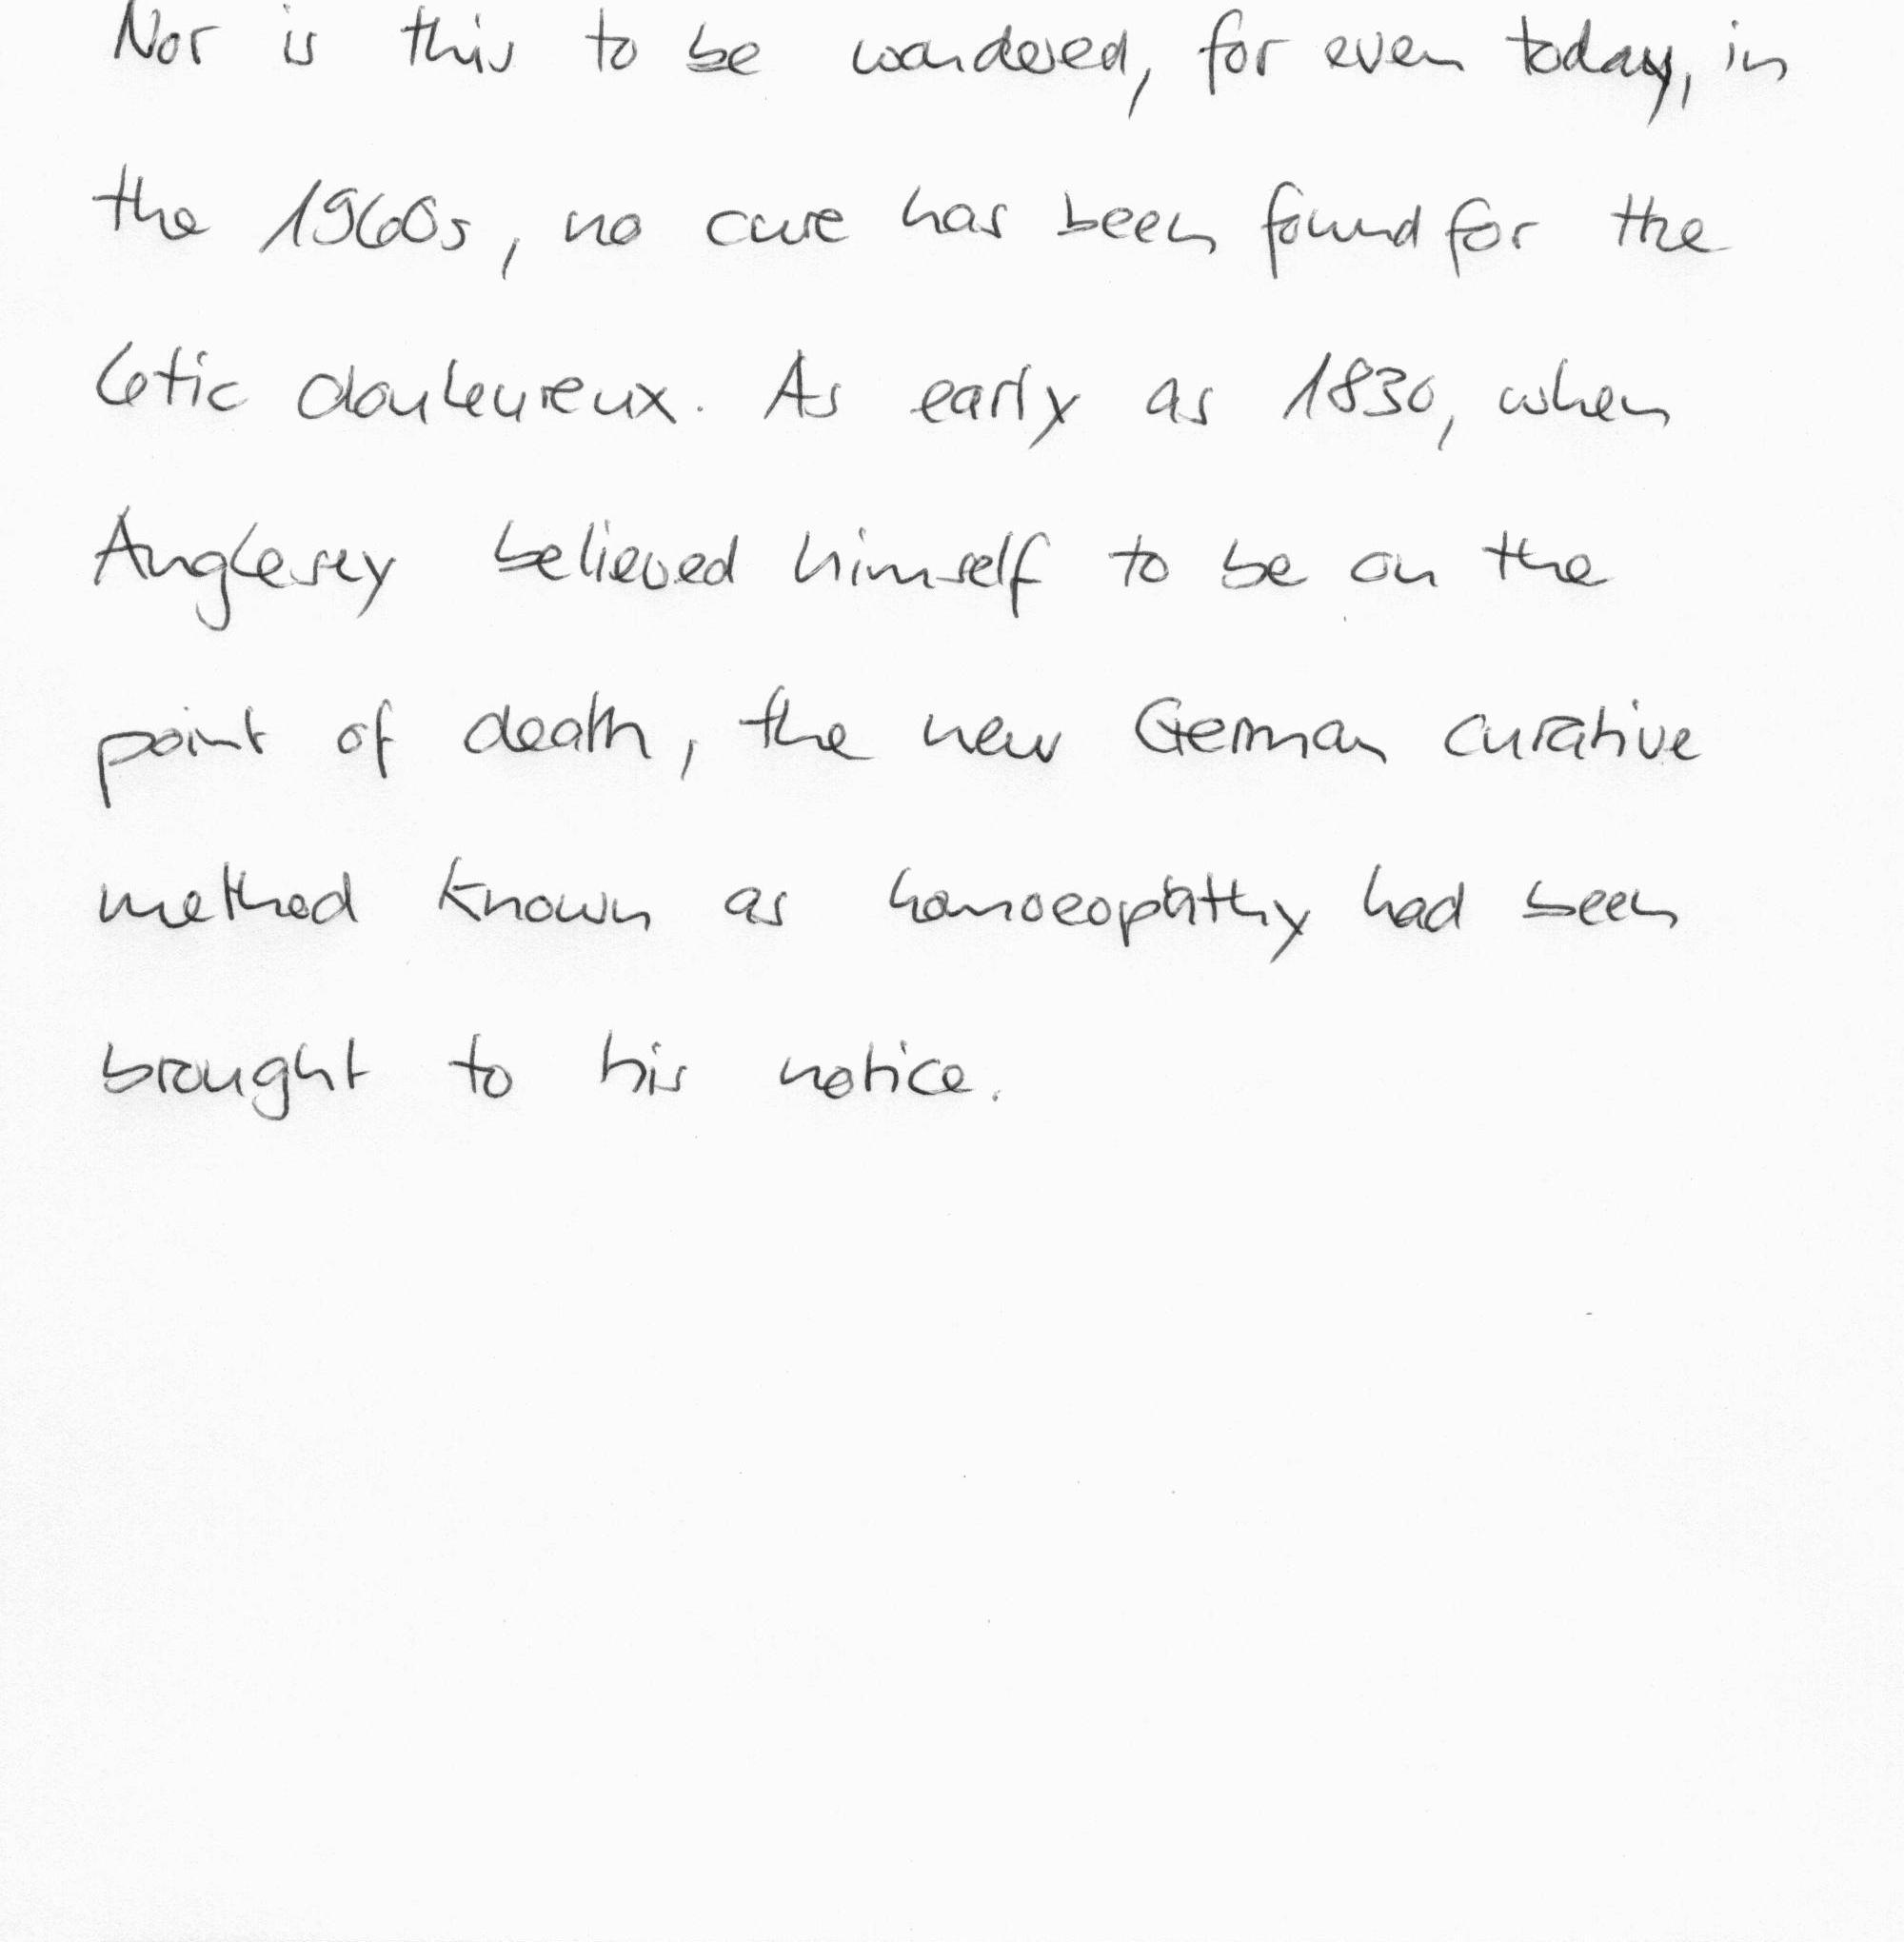 Nor is this to be wondered, for even today, in
the 1960s, no cure has been found for the
tic douleureux. As early as 1830, when
Anglesey believed himself to be on the
point of death, the new German curative
method known as homoeopathy had been
brought to his notice.